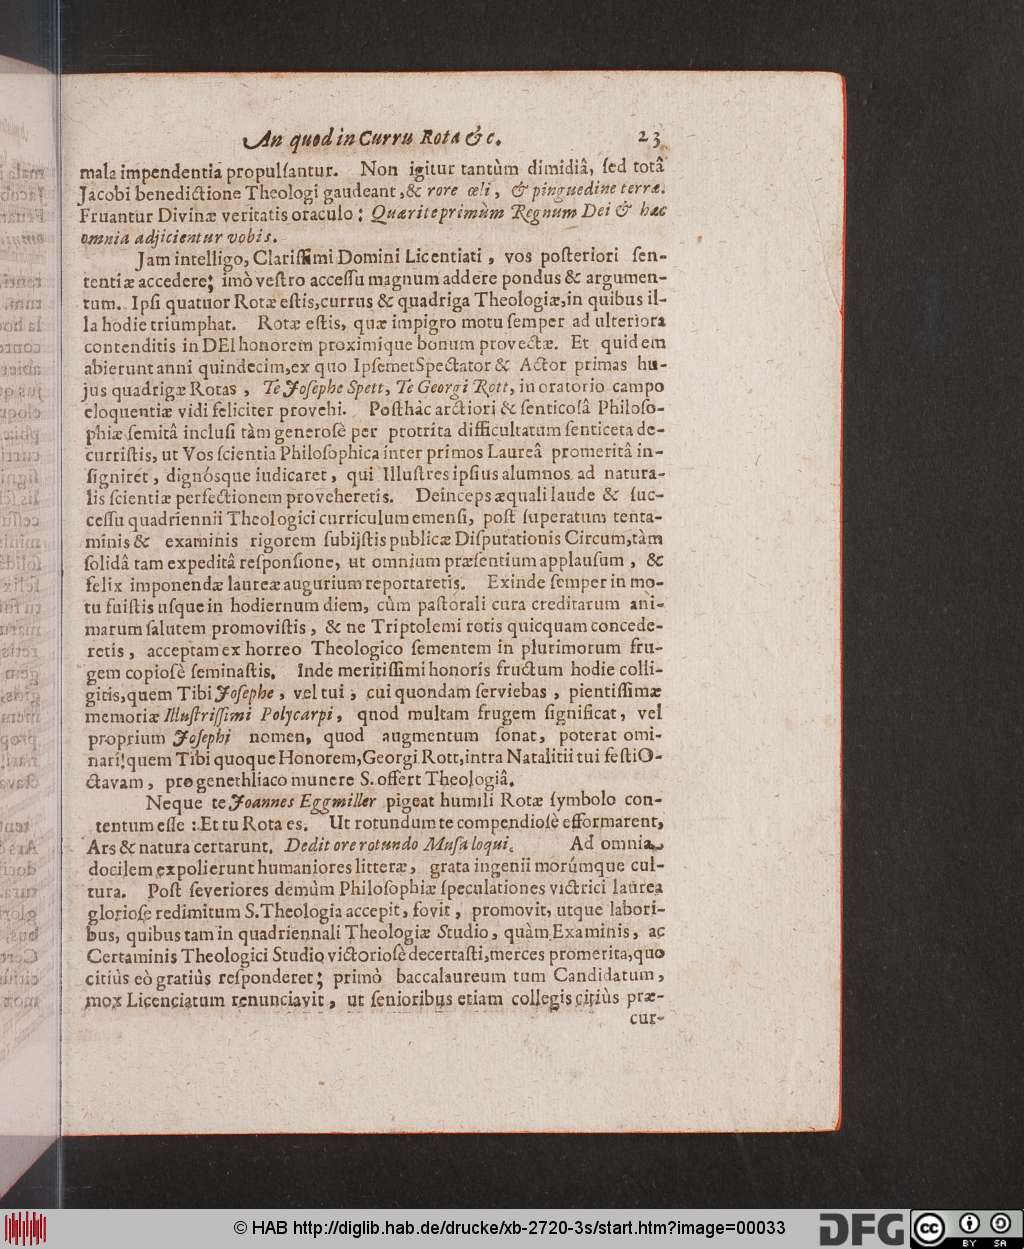 An quod in Curru Rota &c. 23
mala impendentia propulſantur. Non igitur tantùm dimidiâ, ſed totâ
Jacobi benedictione Theologi gaudeant, & rore cœli, & pinguedine terræ.
Fruantur Divinæ veritatis oraculo: Quærite primùm Regnum Dei & hæc
omnia adjicientur vobis.
Jam intelligo, Clariſſimi Domini Licentiati, vos poſteriori ſen-
tentiæ accedere; imò veſtro acceſſu magnum addere pondus & argumen-
tum. Ipſi quatuor Rotæ eſtis, currus & quadriga Theologiæ, in quibus il-
la hodie triumphat. Rotæ eſtis, quæ impigro motu ſemper ad ulteriora
contenditis in DEI honorem proximique bonum provectæ. Et quidem
abierunt anni quindecim, ex quo Ipſemet Spectator & Actor primas hu-
jus quadrigæ Rotas, Te Joſephe Spett, Te Georgi Rott, in oratorio campo
eloquentiæ vidi feliciter provehi. Poſthàc arctiori & ſenticoſâ Philoſo-
phiæ ſemitâ incluſi tàm generosè per protrita difficultatum ſenticeta de-
curriſtis, ut Vos ſcientia Philoſophica inter primos Laureâ promeritâ in-
ſigniret, dignósque iudicaret, qui Illuſtres ipſius alumnos ad natura-
lis ſcientiæ perfectionem proveheretis. Deinceps æquali laude & ſuc-
ceſſu quadriennii Theologici curriculum emenſi, poſt ſuperatum tenta-
minis & examinis rigorem ſubijſtis publicæ Diſputationis Circum, tàm
ſolidâ tam expeditâ reſponſione, ut omnium præſentium applauſum, &
felix imponendæ laureæ augurium reportaretis. Exinde ſemper in mo-
tu fuiſtis uſque in hodiernum diem, cùm paſtorali cura creditarum ani-
marum ſalutem promoviſtis, & ne Triptolemi rotis quicquam concede-
retis, acceptam ex horreo Theologico ſementem in plurimorum fru-
gem copiosè ſeminaſtis. Inde meritiſſimi honoris fructum hodie colli-
gitis, quem Tibi Joſephe, vel tui, cui quondam ſerviebas, pientiſſimæ
memoriæ Illuſtriſſimi Polycarpi, quod multam frugem ſignificat, vel
proprium Joſephi nomen, quod augmentum ſonat, poterat omi-
nari! quem Tibi quoque Honorem, Georgi Rott, intra Natalitii tui feſti O-
ctavam, pro genethliaco munere S. offert Theologiâ.
Neque te Joannes Eggmiller pigeat humili Rotæ ſymbolo con-
tentum eſſe: Et tu Rota es. Ut rotundum te compendioſè efformarent,
Ars & natura certarunt. Dedit ore rotundo Muſa loqui. Ad omnia
docilem expolierunt humaniores litteræ, grata ingenii morúmque cul-
tura. Poſt ſeveriores demùm Philoſophiæ ſpeculationes victrici laurea
glorioſe redimitum S. Theologia accepit, fovit, promovit, utque labori-
bus, quibus tam in quadriennali Theologiæ Studio, quàm Examinis, ac
Certaminis Theologici Studio victorioſè decertaſti, merces promerita, quo
citiùs eò gratiùs reſponderet; primò baccalaureum tum Candidatum,
mox Licenciatum renunciavit, ut ſenioribus etiam collegis citiùs præ-
cur-
© HAB http://diglib.hab.de/drucke/xb-2720-3s/start.htm?image=00033
DFG
cc BY SA